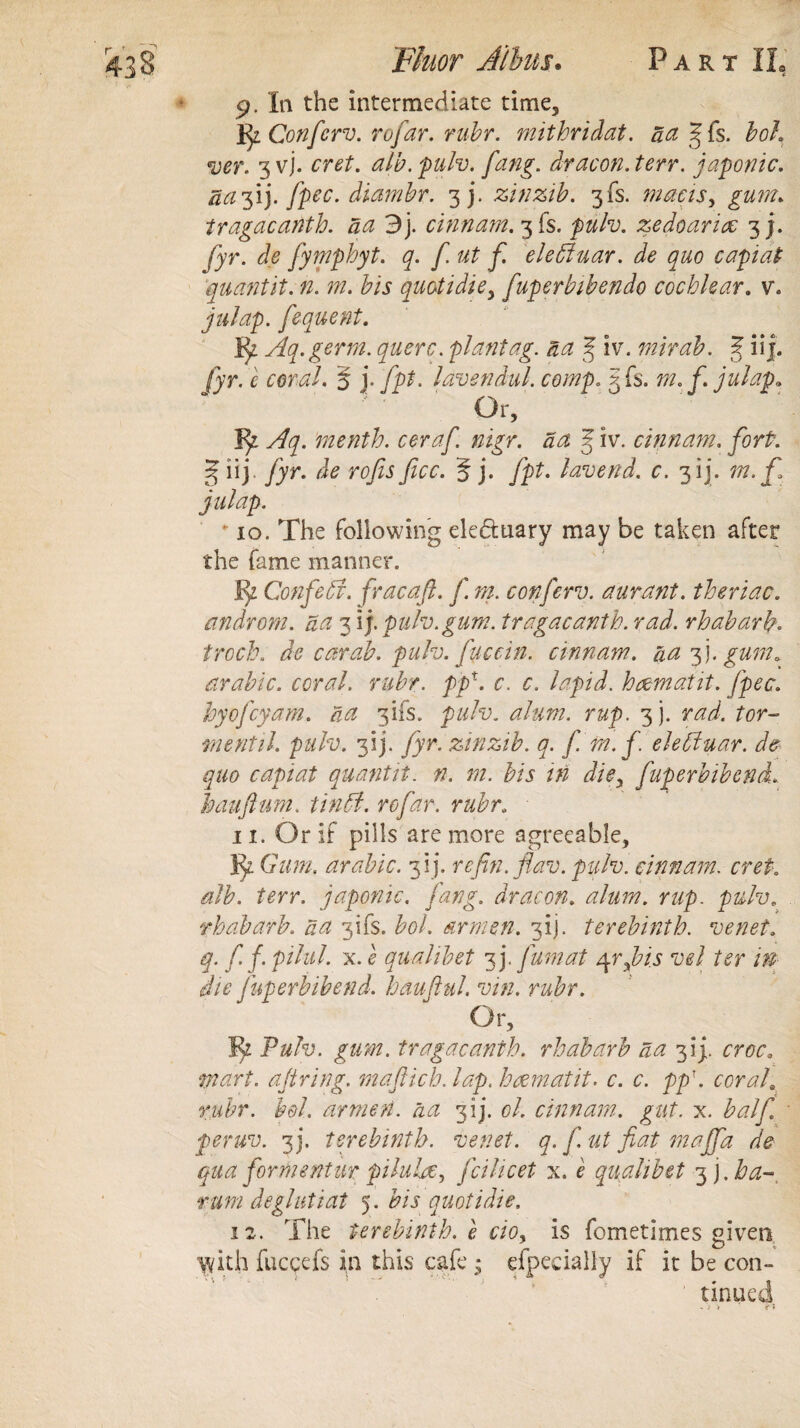 438 Fluor Albus. PART II.
9. In the intermediate time,
℞ Conſerv. roſar. rubr. mithridat. āa ℥ſs. bol.
ver. ʒvj. cret. alb. pulv. ſang. dracon. terr. japonic.
āa ʒij. ſpec. diambr. ʒj. zinzib. ʒſs. macis, gum.
tragacanth. āa ℈j. cinnam. ʒſs. pulv. zedoariæ ʒj.
ſyr. de ſymphyt. q. ſ. ut f. electuar. de quo capiat
quantit. n. m. bis quotidie, ſuperbibendo cochlear. v.
julap. ſequent.
℞ Aq. germ. querc. plantag. āa ℥iv. mirab. ℥iij.
ſyr. è coral. ℥j. ſpt. lavendul. comp. ℥ſs. m. f. julap.
Or,
℞ Aq. menth. ceraſ. nigr. āa ℥iv. cinnam. fort.
℥iij. ſyr. de roſis ſicc. ℥j. ſpt. lavend. c. ʒij. m. f.
julap.
10. The following electuary may be taken after
the ſame manner.
℞ Confect. fracaſt. ſ. m. conſerv. aurant. theriac.
androm. āa ʒij. pulv. gum. tragacanth. rad. rhabarb.
troch. de carab. pulv. ſuccin. cinnam. āa ʒj. gum.
arabic. coral. rubr. ppᵗ. c. c. lapid. hæmatit. ſpec.
hyoſcyam. āa ʒiſs. pulv. alum. rup. ʒj. rad. tor-
mentil. pulv. ʒij. ſyr. zinzib. q. ſ. m. f. electuar. de
quo capiat quantit. n. m. bis in die, ſuperbibend.
hauſtum. tinct. roſar. rubr.
11. Or if pills are more agreeable,
℞ Gum. arabic. ʒij. reſin. flav. pulv. cinnam. cret.
alb. terr. japonic. ſang. dracon. alum. rup. pulv.
rhabarb. āa ʒiſs. bol. armen. ʒij. terebinth. venet.
q. ſ. f. pilul. x. è qualibet ʒj. ſumat 4r, bis vel ter in
die ſuperbibend. hauſtul. vin. rubr.
Or,
℞ Pulv. gum. tragacanth. rhabarb āa ʒij. croc.
mart. aſtring. maſtich. lap. hæmatit. c. c. ppᵗ. coral.
rubr. bol. armen. āa ʒij. ol. cinnam. gut. x. balſ.
peruv. ʒj. terebinth. venet. q. ſ. ut fiat maſſa de
qua formentur pilulæ, ſcilicet x. è qualibet ʒj. ha-
rum deglutiat 5. bis quotidie.
12. The terebinth. è cio, is ſometimes given
with ſucceſs in this caſe; eſpecially if it be con-
tinued